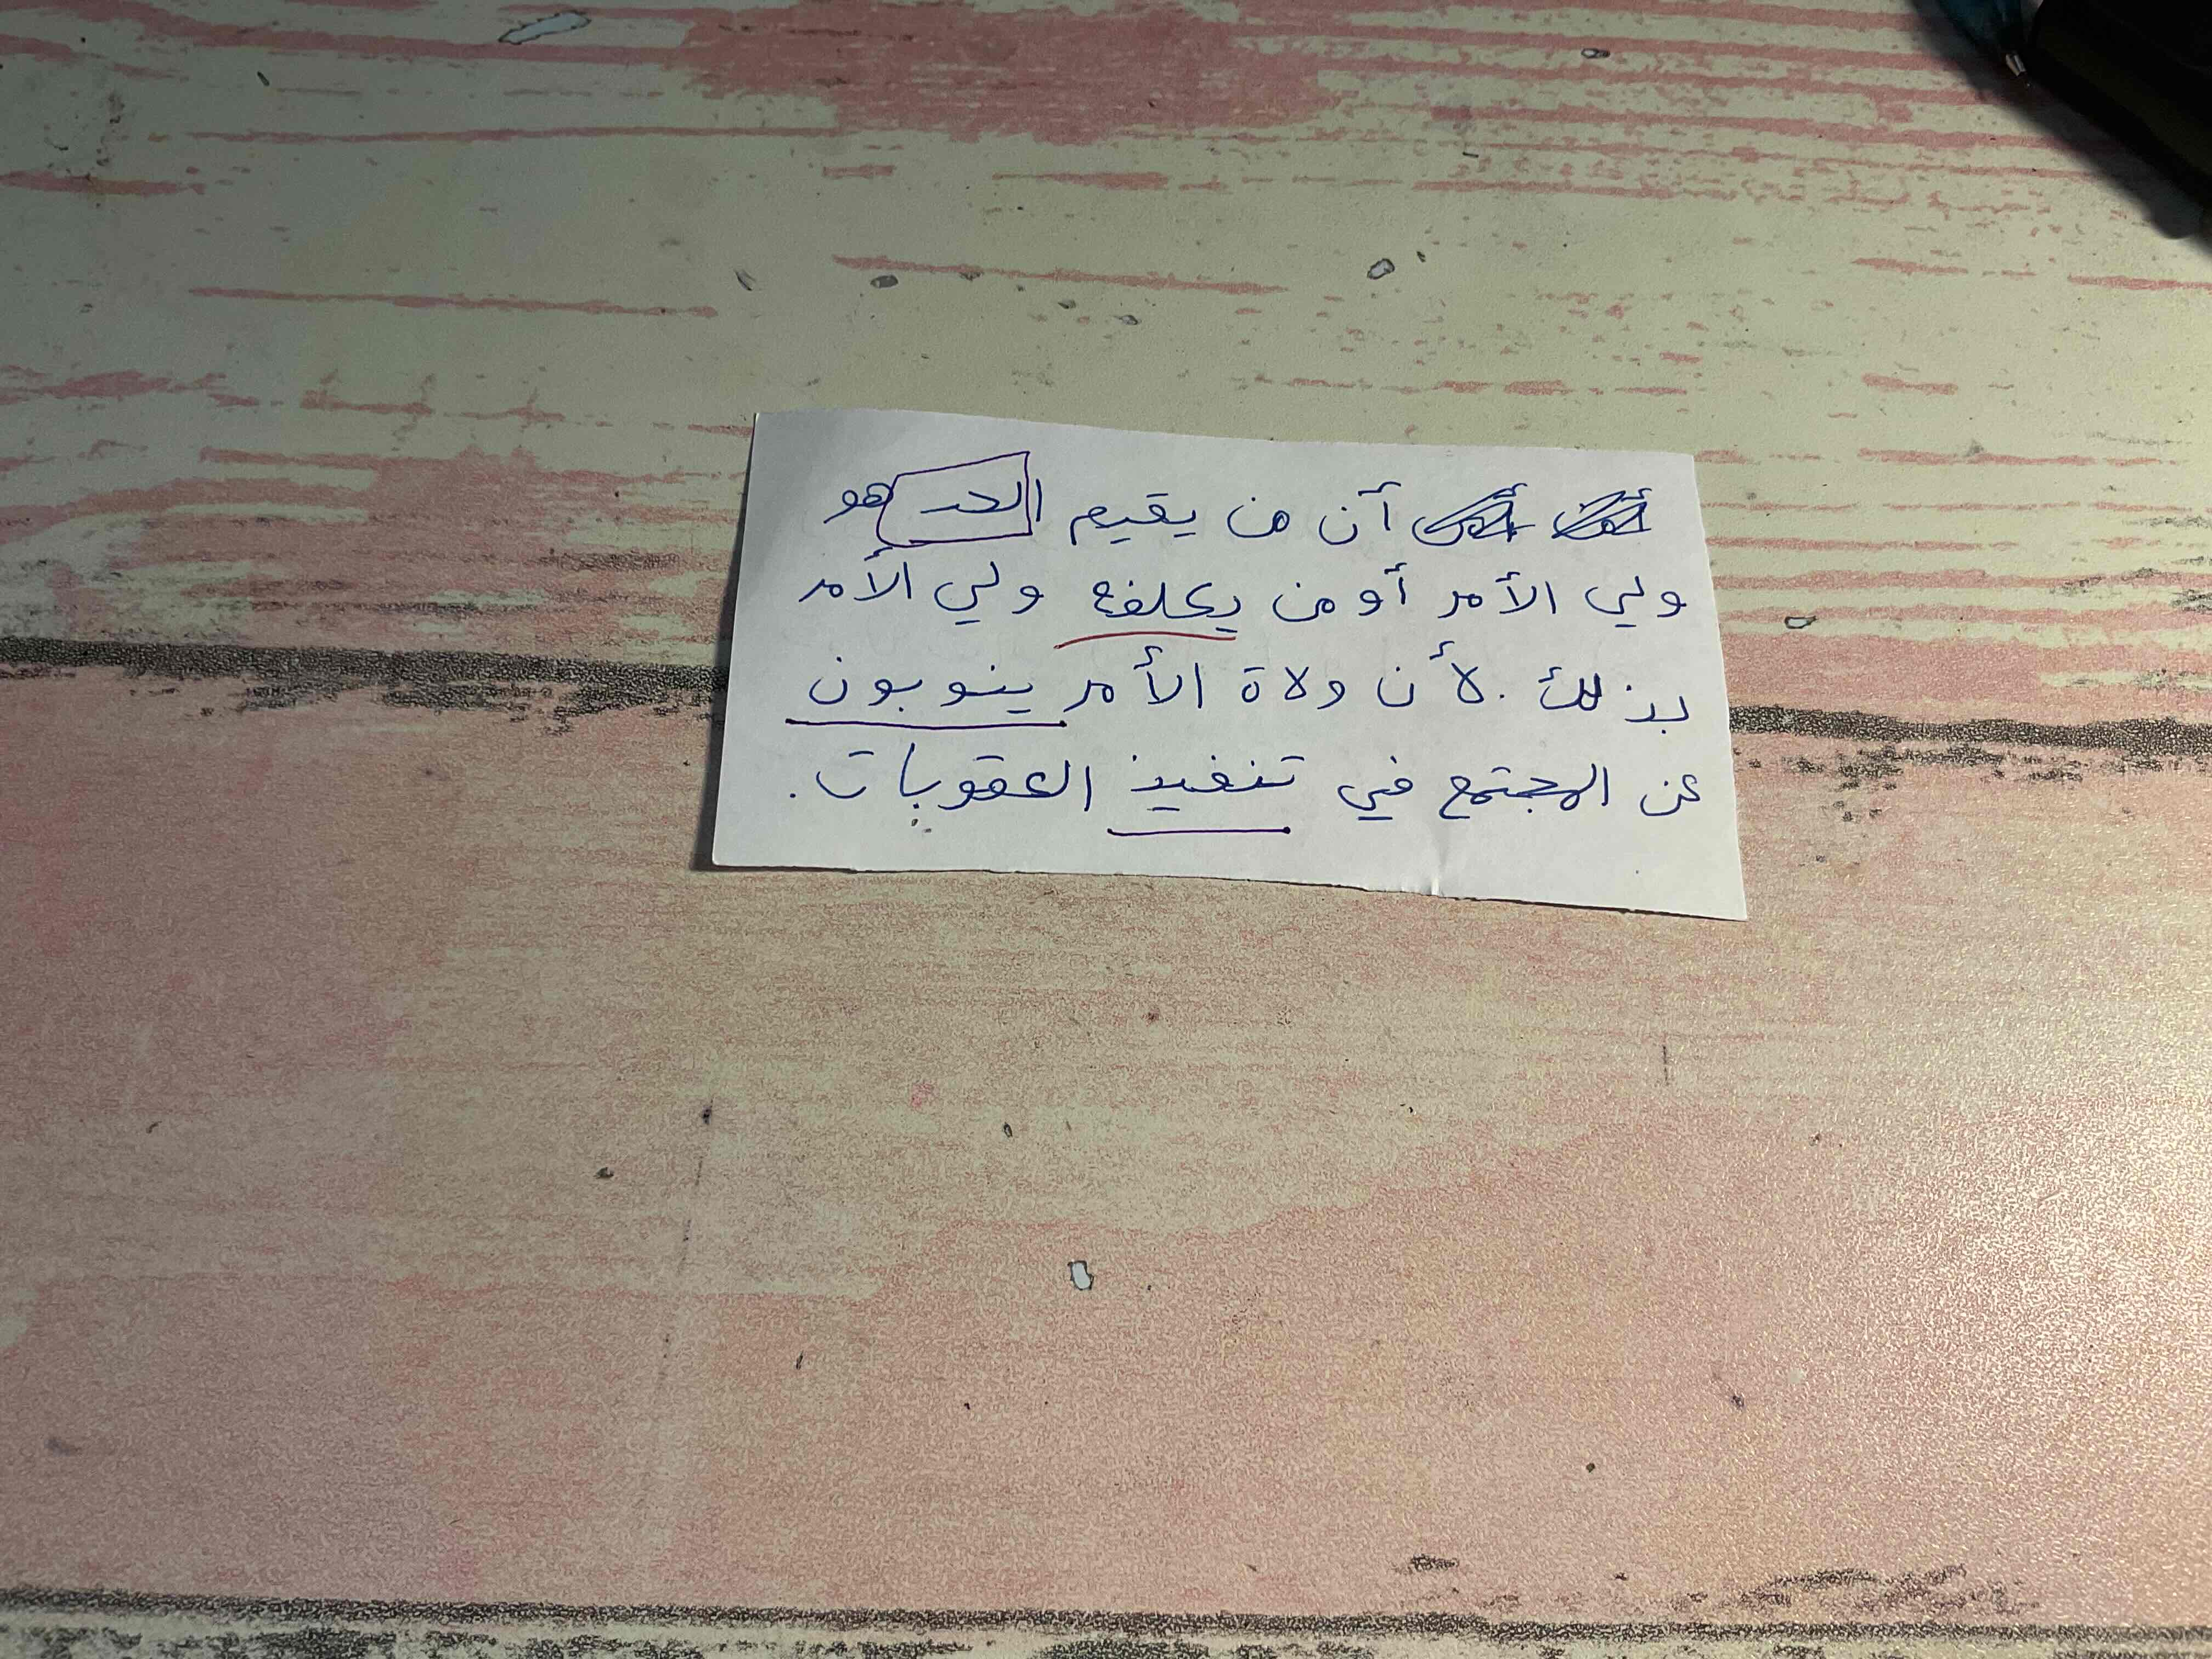 أن من يقيم الحد هو
ولي الأمر أو من يكلفه ولي الأمر
بذلك. لأن ولاة الأمر ينوبون
عن المجتمع في تنفيذ العقوبات.